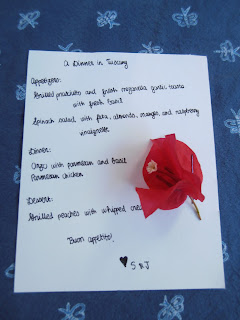 A Dinner in Tuscany
Appetizers:
Grilled prosciutto and fresh mozzarella garlic toasts
with fresh basil
Spinach salad with feta, almonds, orange, and raspberry
vinaigrette
Dinner:
Orzo with parmesan and basil
Parmesan chicken
Dessert:
Grilled peaches with whipped
Buon appetito!
♥ S & J